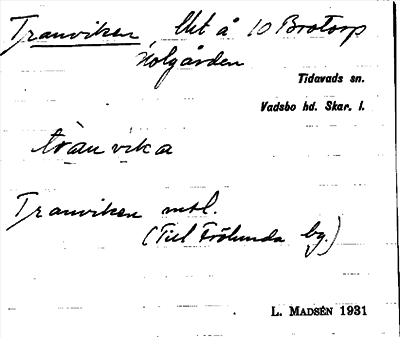 Tranviken, lht å 10 Brotorp
Holgården
Tidavads sn.
Vadsbo hd. Skar. l.
tranvika
Tranviken msl.
(Till Frölunda by.)
L. MADSÉN 1931